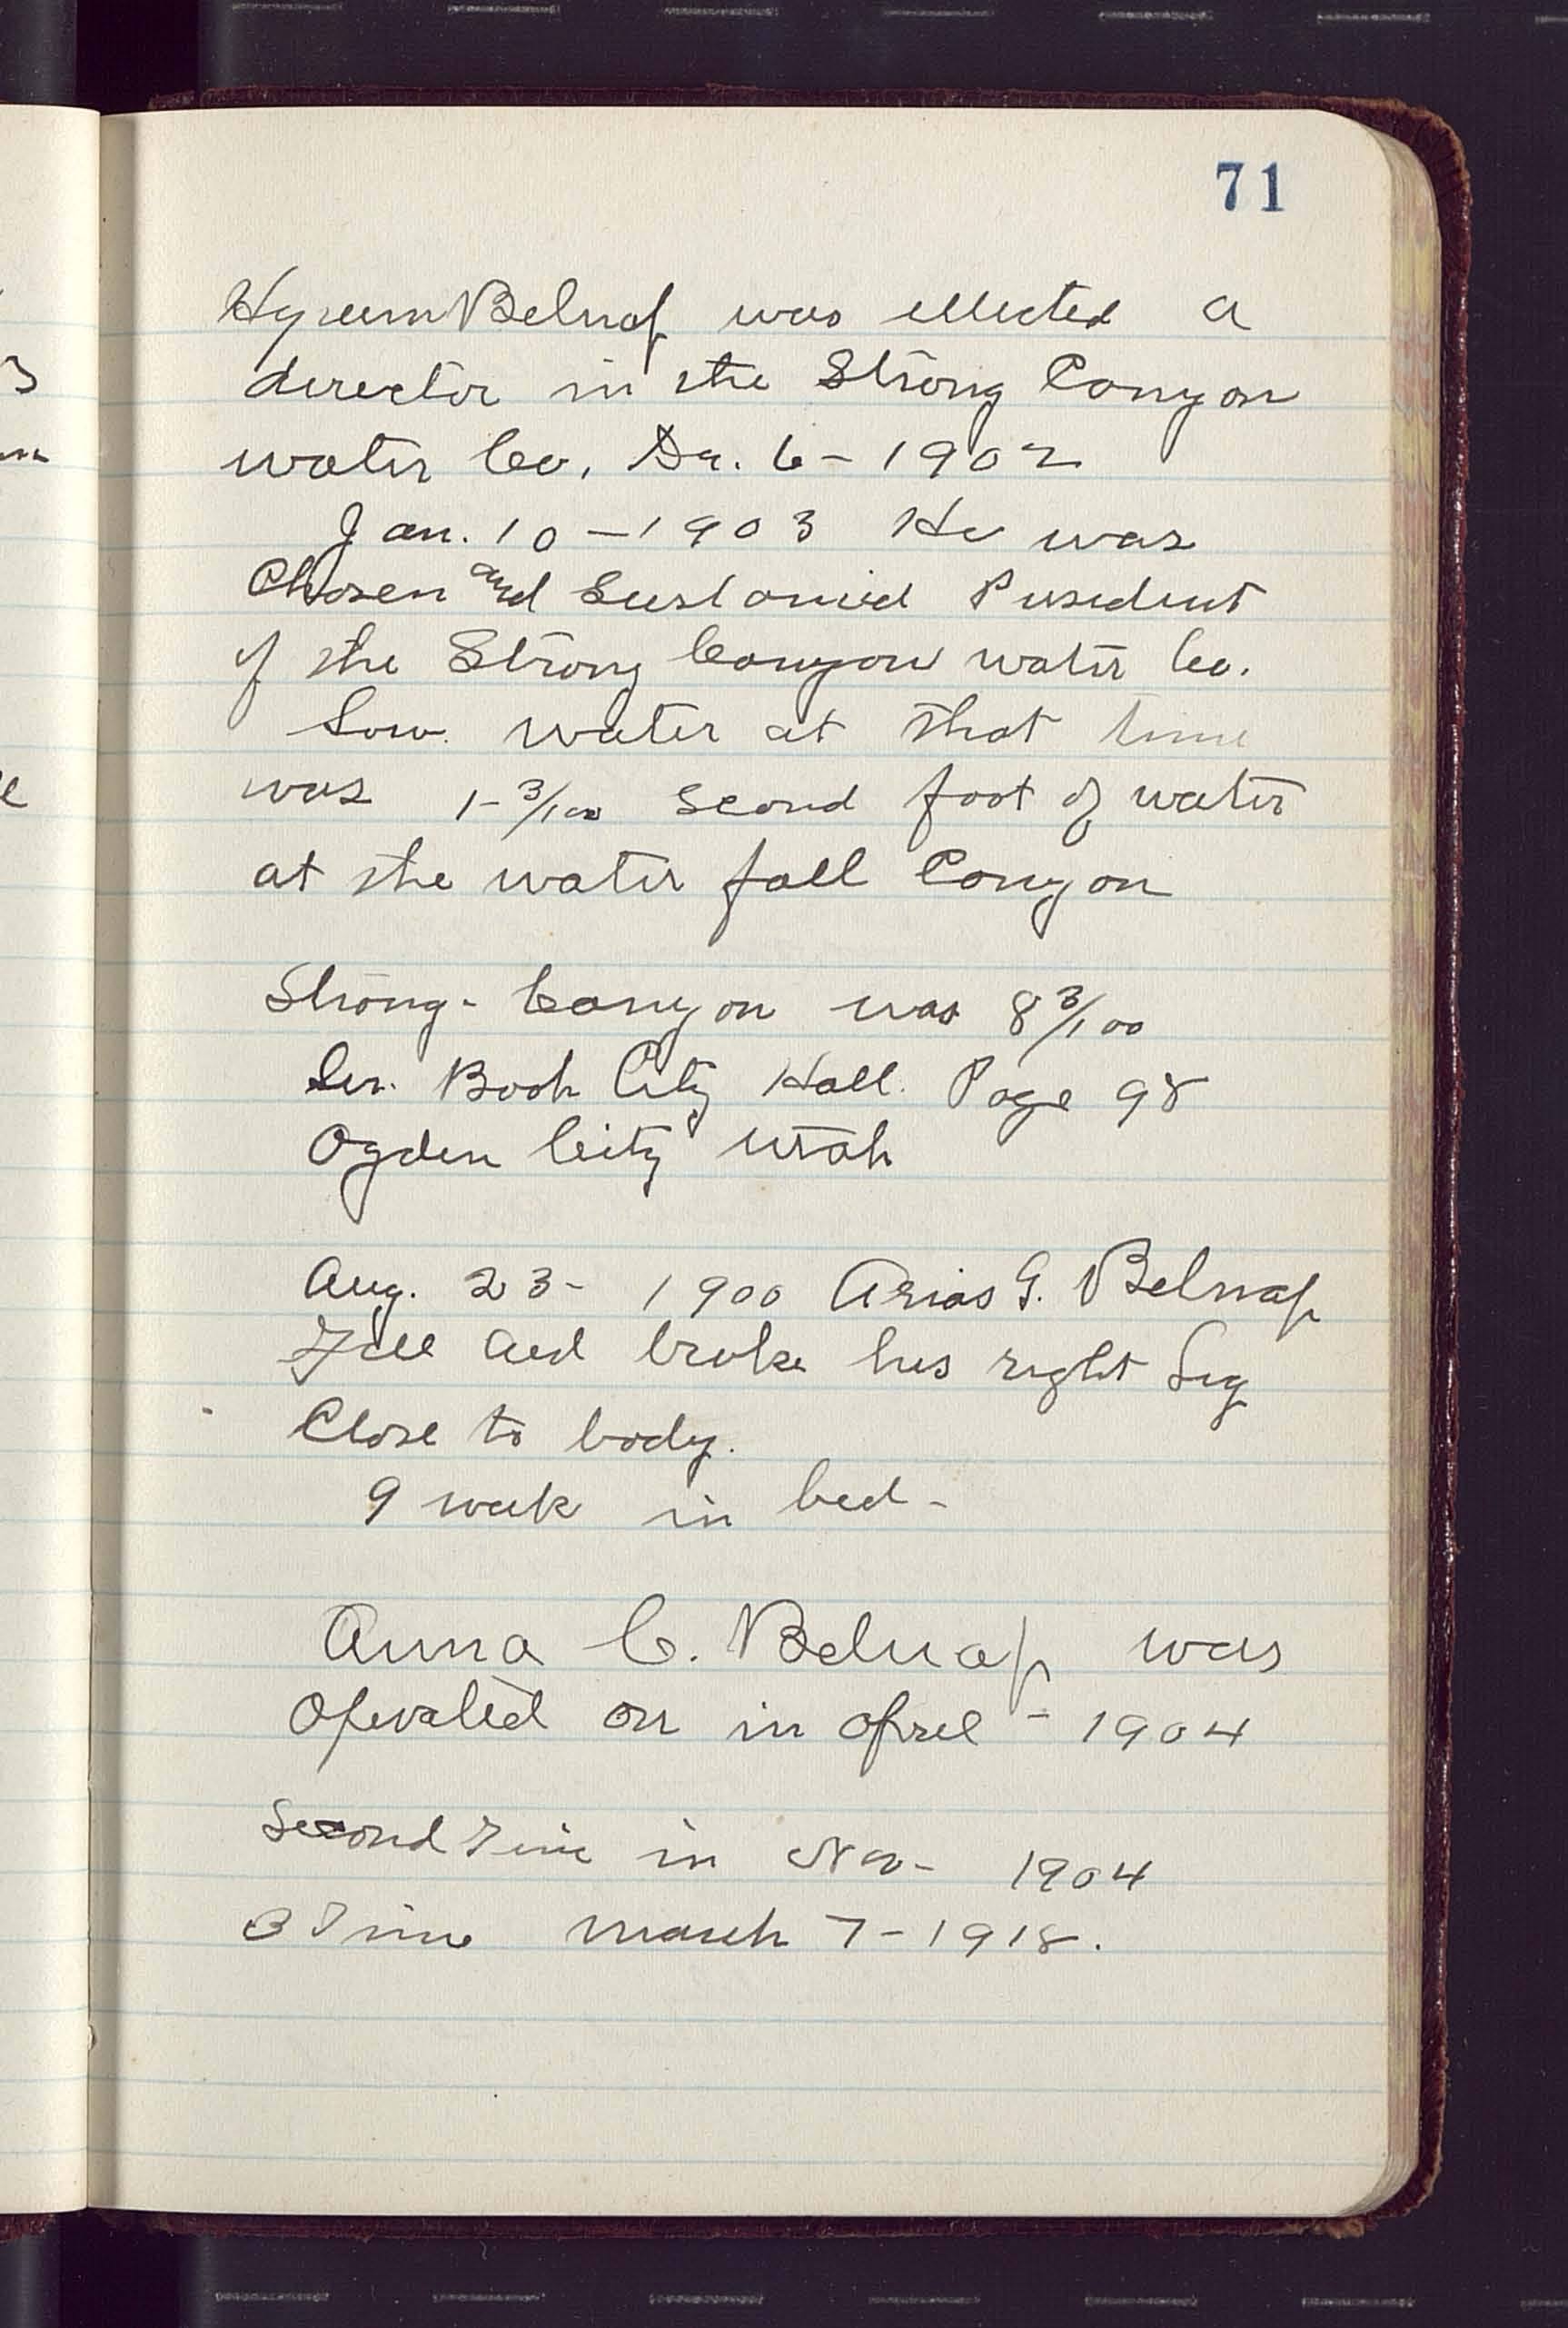 71
Hyrum Belnap was ellected a
director in the Strong Canyon
water Co. De. 6 - 1902
Jan. 10 - 1903 He was
Chosen and Sustained President
of the Strong Canyon water Co.
Low water at that time
was 1-3/100 Second foot of water
at the water fall Canyon
Strong - Canyon was 8 3/100
Book City Hall. Page 98
Ogden City Utah
Aug. 23 - 1900 Arias G. Belnap
Fell and broke his right Leg
Close to body.
9 week in bed -
Anna C. Belnap was
Operated on in april - 1904
Second Time in Nov - 1904
3 Time march 7 - 1918.